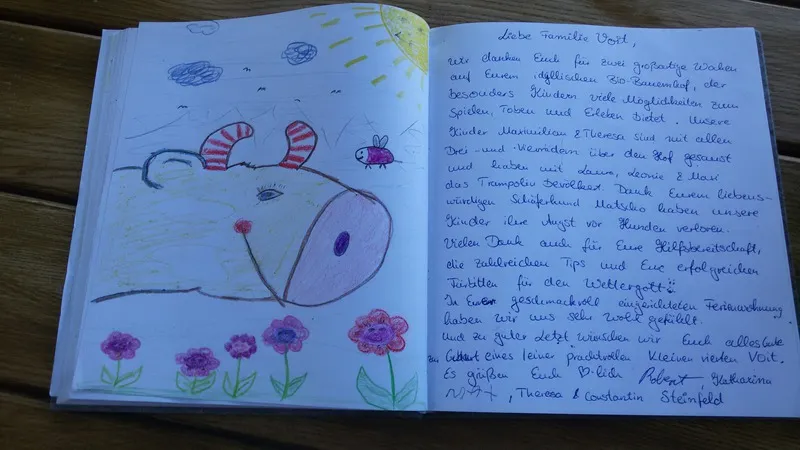 Liebe Familie Voit,
wir danken Euch für zwei großartige Wochen
auf Eurem idyllischen Bio-Bauernhof, der
besonders Kindern viele Möglichkeiten zum
Spielen, Toben und Erleben bietet. Unsere
Kinder Maximilian & Theresa sind mit allen
Drei- und Vierrädern über den Hof gesaust
und haben mit Laura, Leonie & Maxi
das Trampolin bevölkert. Dank Eurem liebens-
würdigen Schäferhund Matscho haben unsere
Kinder ihre Angst vor Hunden verloren.
Vielen Dank auch für Eure Hilfsbereitschaft,
die zahlreichen Tips und Eure erfolgreichen
Fürbitten für den Wettergott!
In Eurer geschmackvoll eingerichteten Ferienwohnung
haben wir uns sehr wohl gefühlt.
Und zu guter Letzt wünschen wir Euch alles Gute
zur Geburt eines prachtvollen kleinen vierten Voit.
Es grüßen Euch ♡-lich Robert, Katharina
MAX, Theresa & Constantin Steinfeld